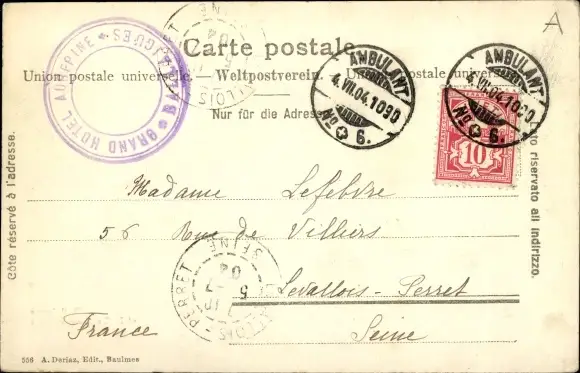 A
Carte postale.
Union postale universelle. — Weltpostverein. —
Nur für die Adresse
Côte réservé à l'adresse.
riservato all indirizzo.
GRAND HOTEL AUBEPINE
AMBULANT
4.VII.04.10
No 6.
AMBULANT
4.VII.04.10
No 6.
10
Madame Lefebvre
56 Rue de Villiers
Levallois-Perret
Seine
France
PERRET
SEINE
5
04
556 A. Deriaz, Edit., Baulmes